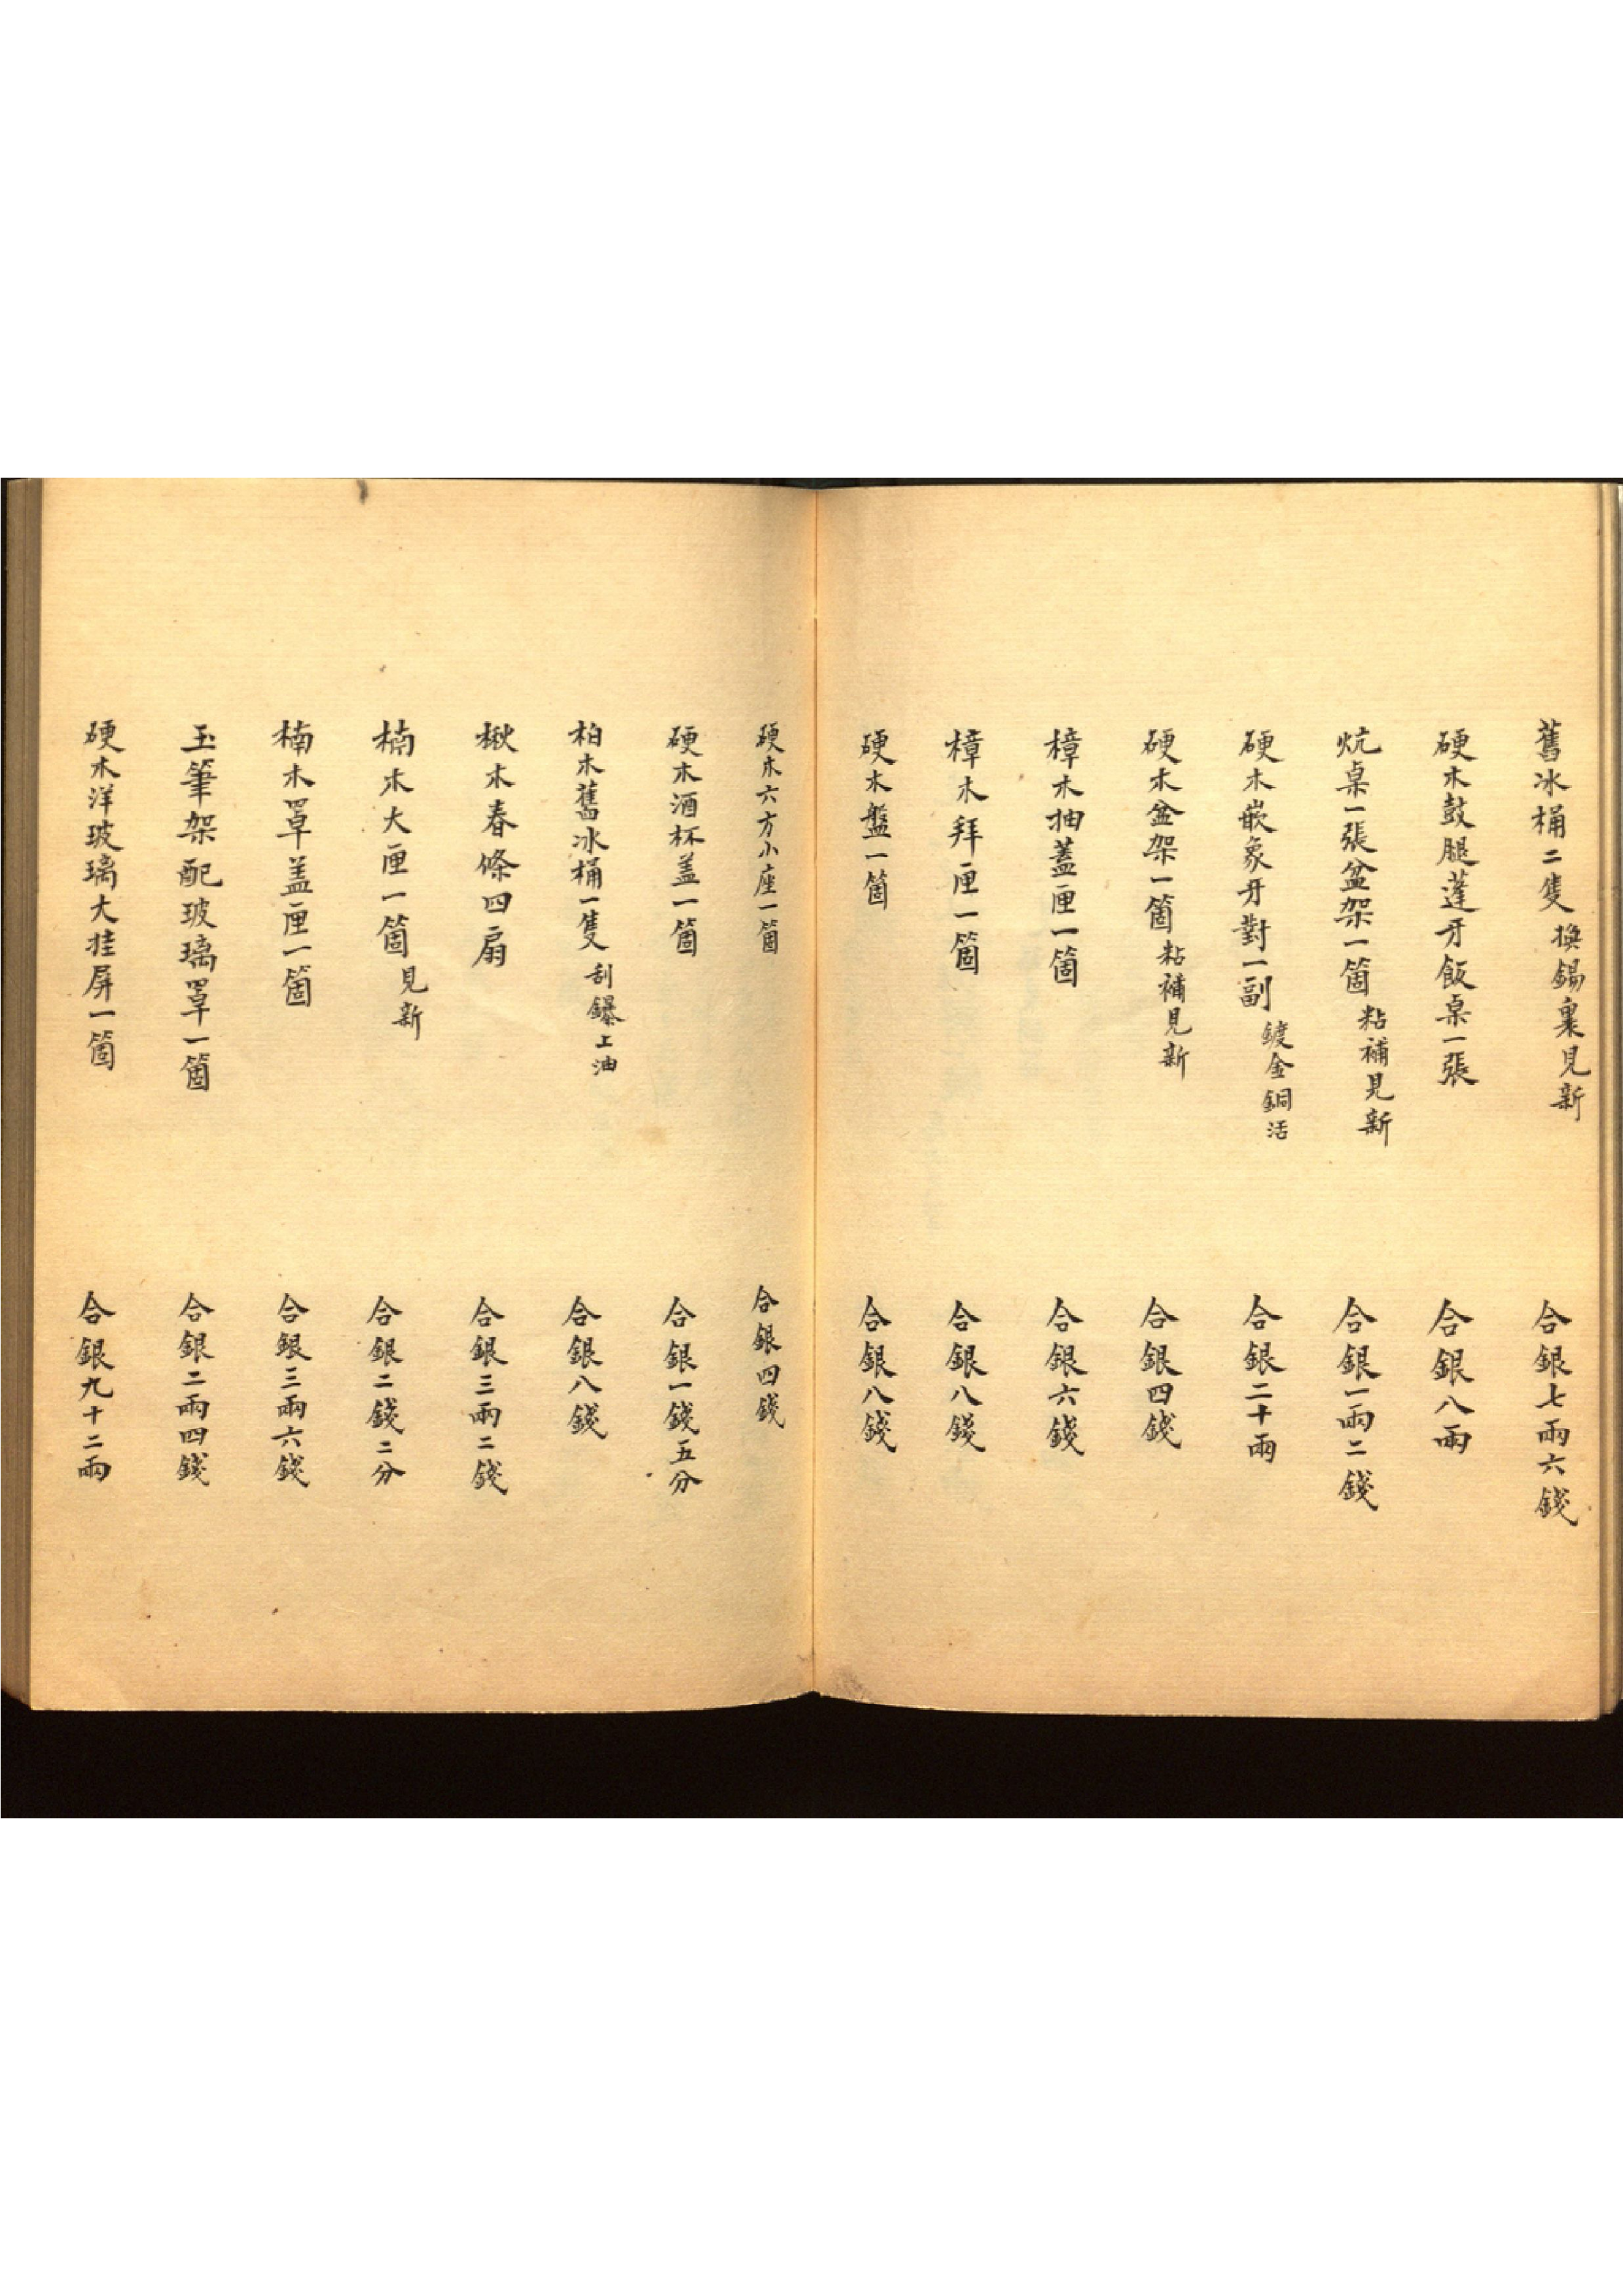 舊冰桶二隻換錫裏見新 合銀七兩六錢
硬木鼓腿蓬牙飯桌一張 合銀八兩
炕桌一張盆架一箇粘補見新 合銀一兩二錢
硬木嵌象牙對一副鍍金銅活 合銀二十兩
硬木盆架一箇粘補見新 合銀四錢
樟木抽蓋匣一箇 合銀六錢
樟木拜匣一箇 合銀八錢
硬木盤一箇 合銀八錢
硬木六方小座一箇 合銀四錢
硬木酒杯盖一箇 合銀一錢五分
柏木舊冰桶一隻刮鑤上油 合銀八錢
楸木春條四扇 合銀三兩二錢
楠木大匣一箇見新 合銀二錢二分
楠木罩盖匣一箇 合銀三兩六錢
玉筆架配玻璃罩一箇 合銀二兩四錢
硬木洋玻璃大挂屏一箇 合銀九十二兩